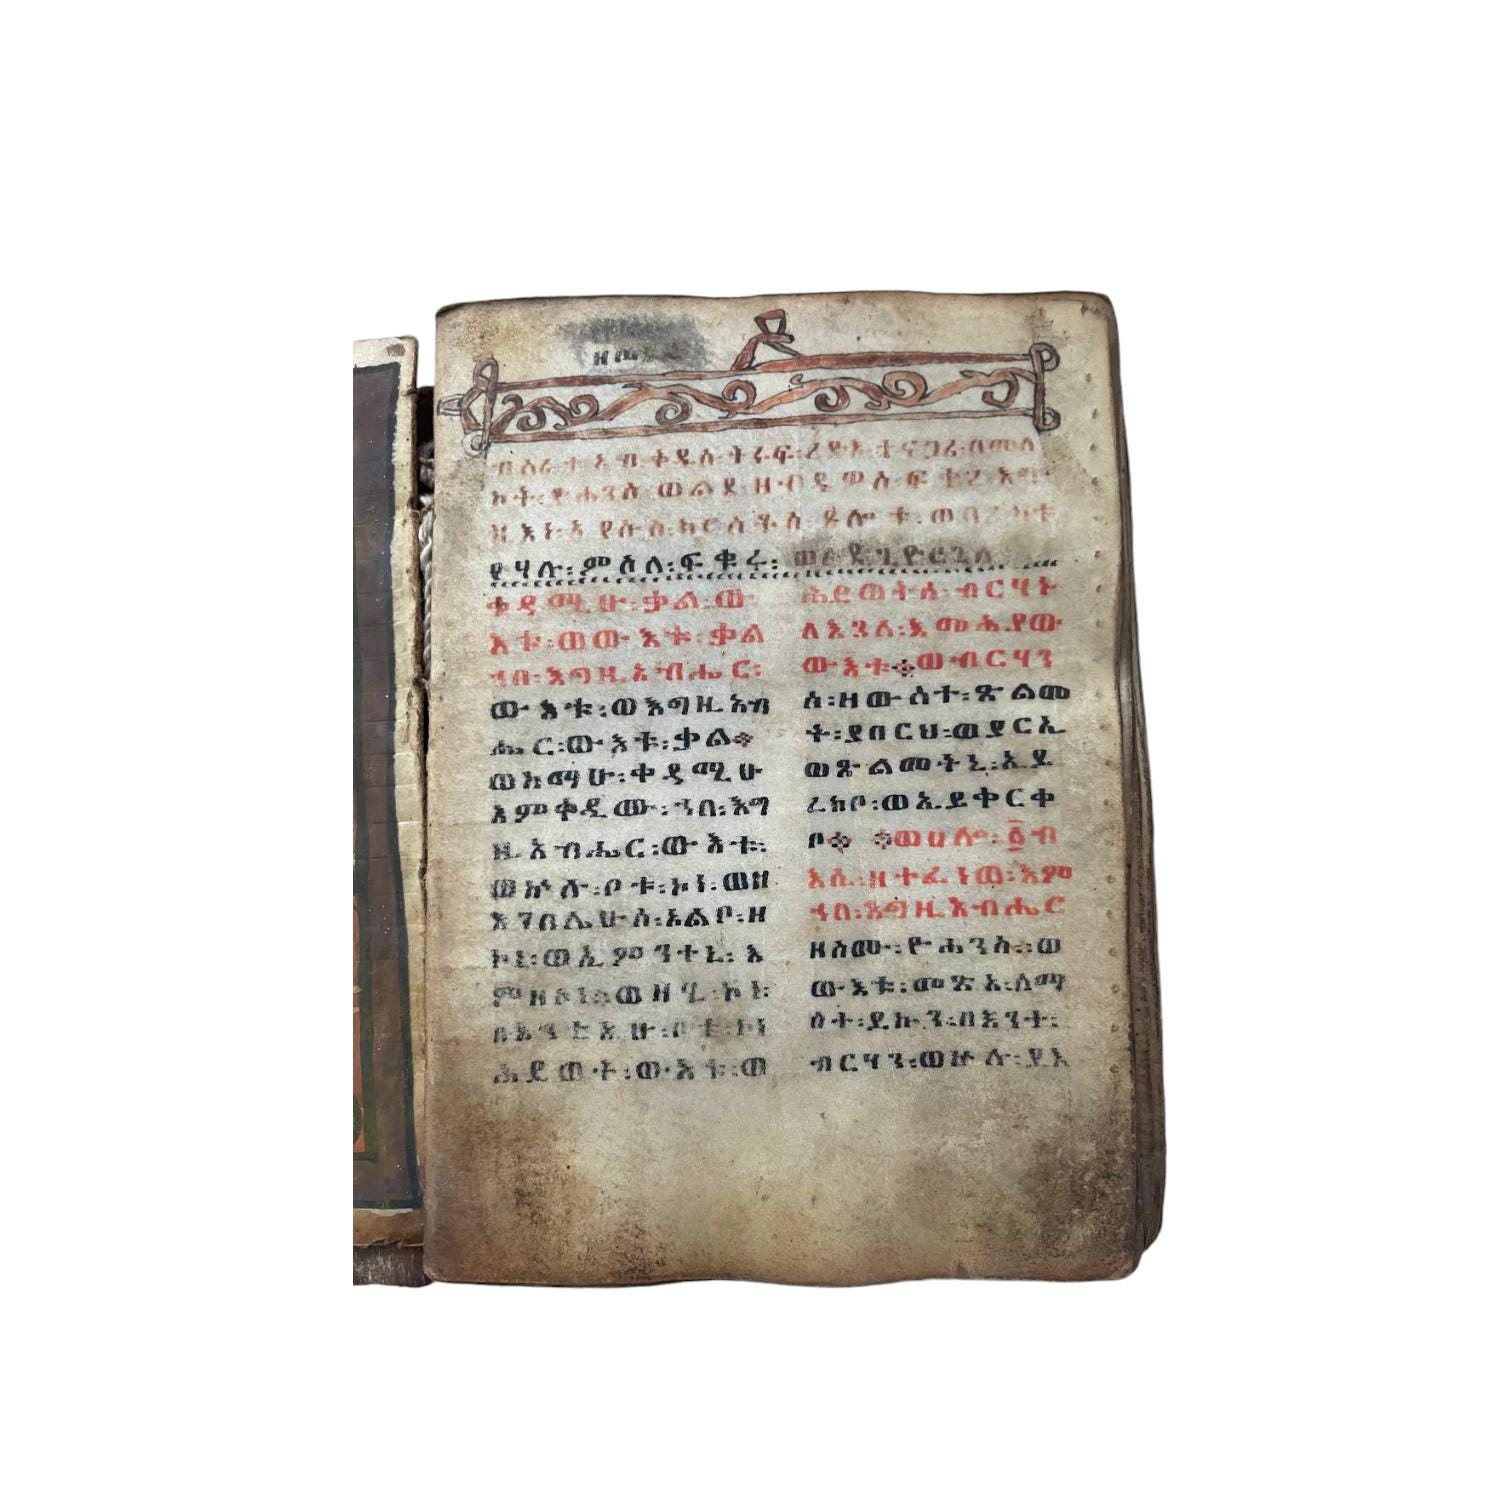 ብስራተ፡ አብ፡ ቀዱስ፡ ትሩፍ፡ ረድእ፡
ኮት፡ ዮሐንስ፡ ወልደ፡ ዘብዴዎስ፡ ፍቁረ፡ እግ
ዚእነ፡ ኢየሱስ፡ ክርስቶስ፡ ጸሎቱ፡ ወበረከቱ
የሃሉ፡ ምስለ፡ ፍቁሩ፡
ቀዳሚሁ፡ ቃል፡ ው
እቱ፡ ወውእቱ፡ ቃል
ኀበ፡ እግዚአብሔር፡
ውእቱ፡ ወእግዚአብ
ሔር፡ ውእቱ፡ ቃል፨
ወከማሁ፡ ቀዳሚሁ
እምቀዲሙ፡ ኀበ፡ እግ
ዚአብሔር፡ ውእቱ፡
ወኵሉ፡ ቦቱ፡ ኮነ፡ ወዘ
እንበሌሁሰ፡ አልቦ፡ ዘ
ኮነ፡ ወኢምንተኒ፡ እ
ምዘኮነ፡ ወዘሂ፡ ኮነ፡
በእንቲአሁ፡ ቦቱ፡ ኮነ
ሕይወት፡ ውእቱ፡ ወ
ሕይወትሰ፡ ብርሃኑ
ለእጓለ፡ እመሕያው
ውእቱ፨ ወብርሃን
ሰ፡ ዘውስተ፡ ጽልመ
ት፡ ያበርህ፡ ወያርኢ
ወጽልመትኒ፡ ኢይ
ረክቦ፡ ወኢይቀርቀ
ቦ፨ ፨ወሀሎ፡ ፩ብ
እሲ፡ ዘተፈነወ፡ እም
ኀበ፡ እግዚአብሔር
ዘስሙ፡ ዮሐንስ፡ ወ
ውእቱ፡ መጽአ፡ ለማ
ስት፡ ይኩን፡ በእንተ፡
ብርሃን፡ ወኵሉ፡ ያአ